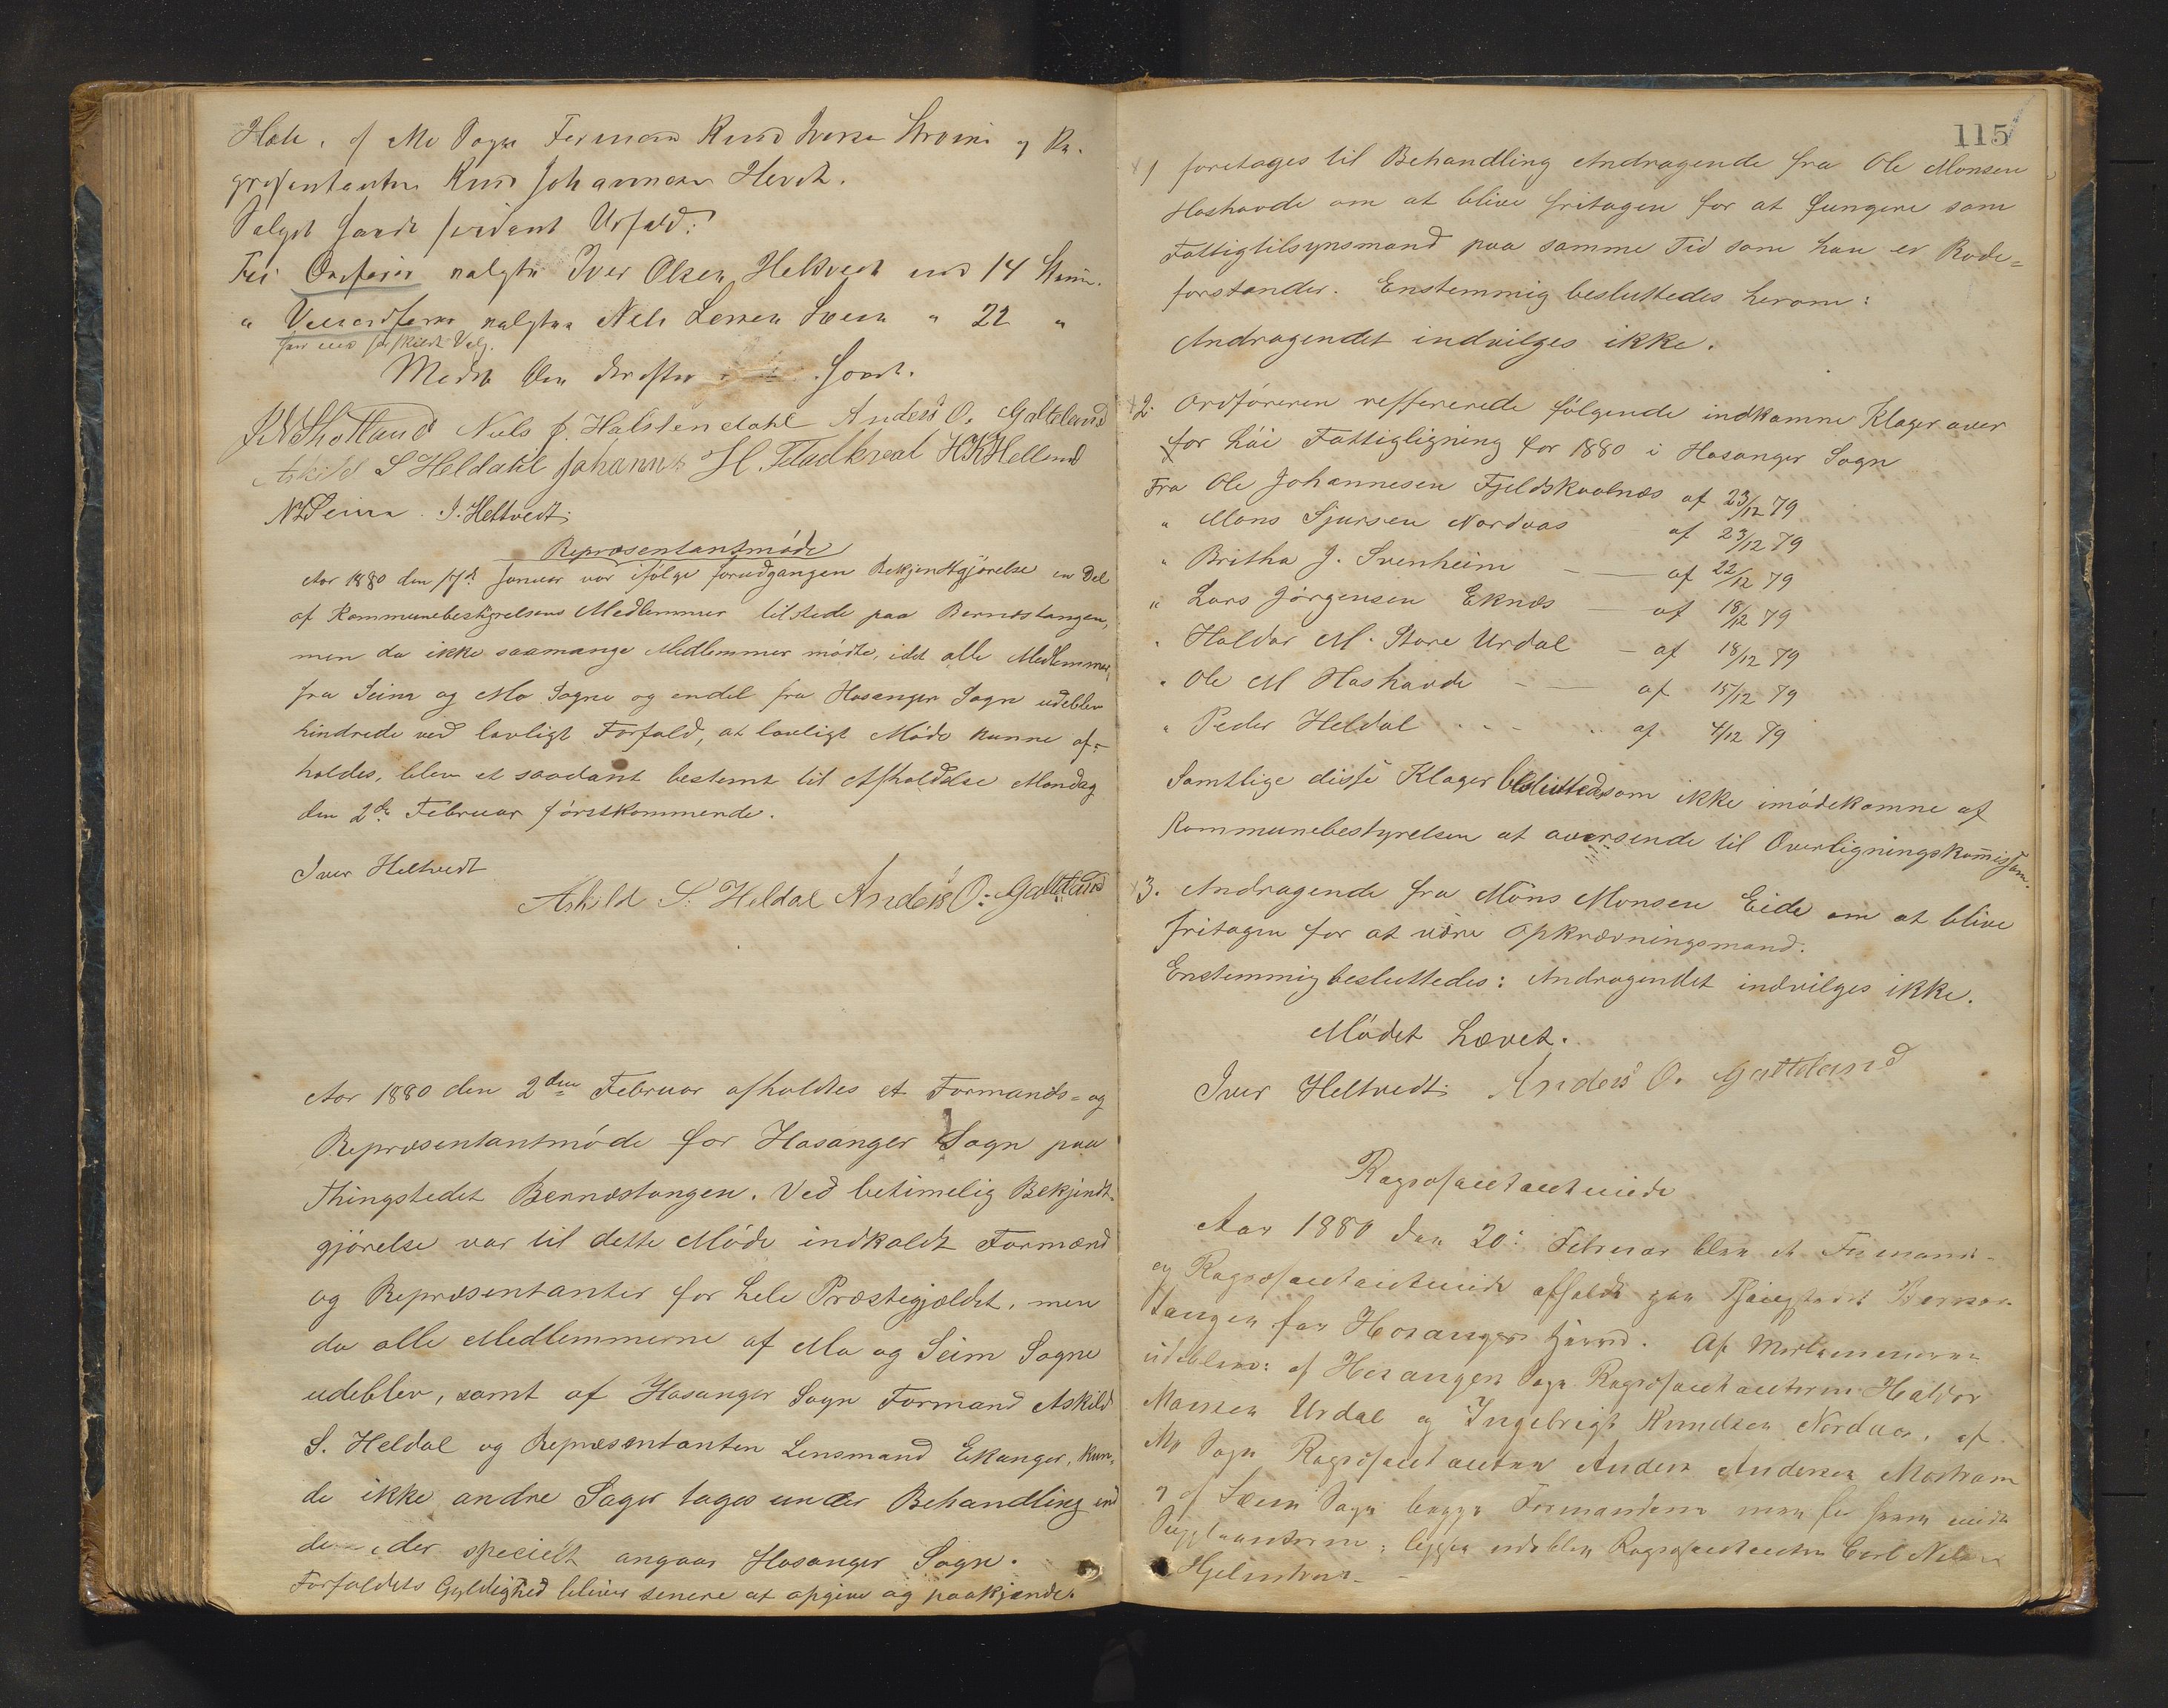 af Mo Sogn Formand Knud Iversen og Re-
præsentanten Knud Johannesen
Valget havde saadant Udfald:
Til Ordfører valgtes Iver Olsen Heltvedt med 14 Stem.
" Viceordfører valgtes Nils " 22 "
Mødet blev derefter hævet.
Nils J. Halstendahl Anders O. Galteland
Askild S Heldahl Johannes H. HKHelland
I. Heltvedt
Repræsentantmøde
Aar 1880 den 17d Januar var ifølge forudgangen Bekjendtgjørelse en Del
af Kommunebestyrelsens Medlemmer tilstede paa Bernestangen,
men da ikke saamange Medlemmer mødte, idet alle Medlemmer
fra Seim og Mo Sogne og endel fra Hosanger Sogn udeblev
hindrede ved lovligt Forfald, at lovligt Møde kunne af-
holdes, blev et saadant bestemt til Afholdelse Mandag
den 2de Februar førstkommende.
Iver Heltvedt
Askild S. Heldal Anders O. Galteland
Aar 1880 den 2den Februar afholdtes et Formands- og
Repræsentantmøde for Hosanger Sogn paa
Thingstedet Bernestangen. Ved betimelig Bekjendt-
gjørelse var til dette Møde indkaldt Formænd
og Repræsentanter for hele Præstegjældet, men
da alle Medlemmerne af Mo og Seim Sogne
udeblev, samt af Hosanger Sogn Formand Askild
S. Heldal og Repræsentanten Lensmand Ekanger, kun-
de ikke andre Sager tages under Behandling end
de, der specielt angaar Hosanger Sogn.
Forfaldets Gyldighed bliver senere at opgive og paakjende.
115
1 foretoges til Behandling Andragende fra Ole Monsen
Hoshovde om at blive fritagen for at fungere som
Fattigtilsynsmand paa samme Tid som han er Rode-
forstander. Enstemmig besluttedes herom:
Andragendet indvilges ikke.
2. Ordføreren reffererede følgende indkomne Klager over
for høi Fattigligning for 1880 i Hosanger Sogn
Fra Ole Johannesen Fjeldskaalnæs af 23/12 79
" Mons Sjursen Nordaas af 23/12 79
" Britha J. Svenheim — af 22/12 79
" Lars Jørgensen Eknæs — af 18/12 79
" Haldor M. Store Urdal — af 18/12 79
" Ole M Hoshovde — af 15/12 79
" Peder Heldal af 4/12 79
Samtlige disse Klager besluttedes som ikke imødekomne af
Kommunebestyrelsen at oversende til Overligningskommissionen.
3. Andragende fra Mons Monsen Eide om at blive
fritagen for at være Opkrævningsmand.
Enstemmig besluttedes: Andragendet indvilges ikke.
Mødet hævet.
Iver Heltvedt Anders O. Galteland
Repræsentantmøde
Aar 1880 den 20: Februar blev et Formands-
og Repræsentantmøde afholdt paa Thingstedet Bernes-
tangen for Hosanger Herred. Af Medlemmerne
udeblev: af Hosanger Sogn Repræsentanterne Haldor
Monsen Urdal og Ingebrigt Knudsen Nordaas, af
Mo Sogn Repræsentanten Anders Andersen Mostraum
og af Seim Sogn begge Formændene men for dem mødte
Suppleanterne; ligesaa udeblev Repræsentanten Carl Nilsen